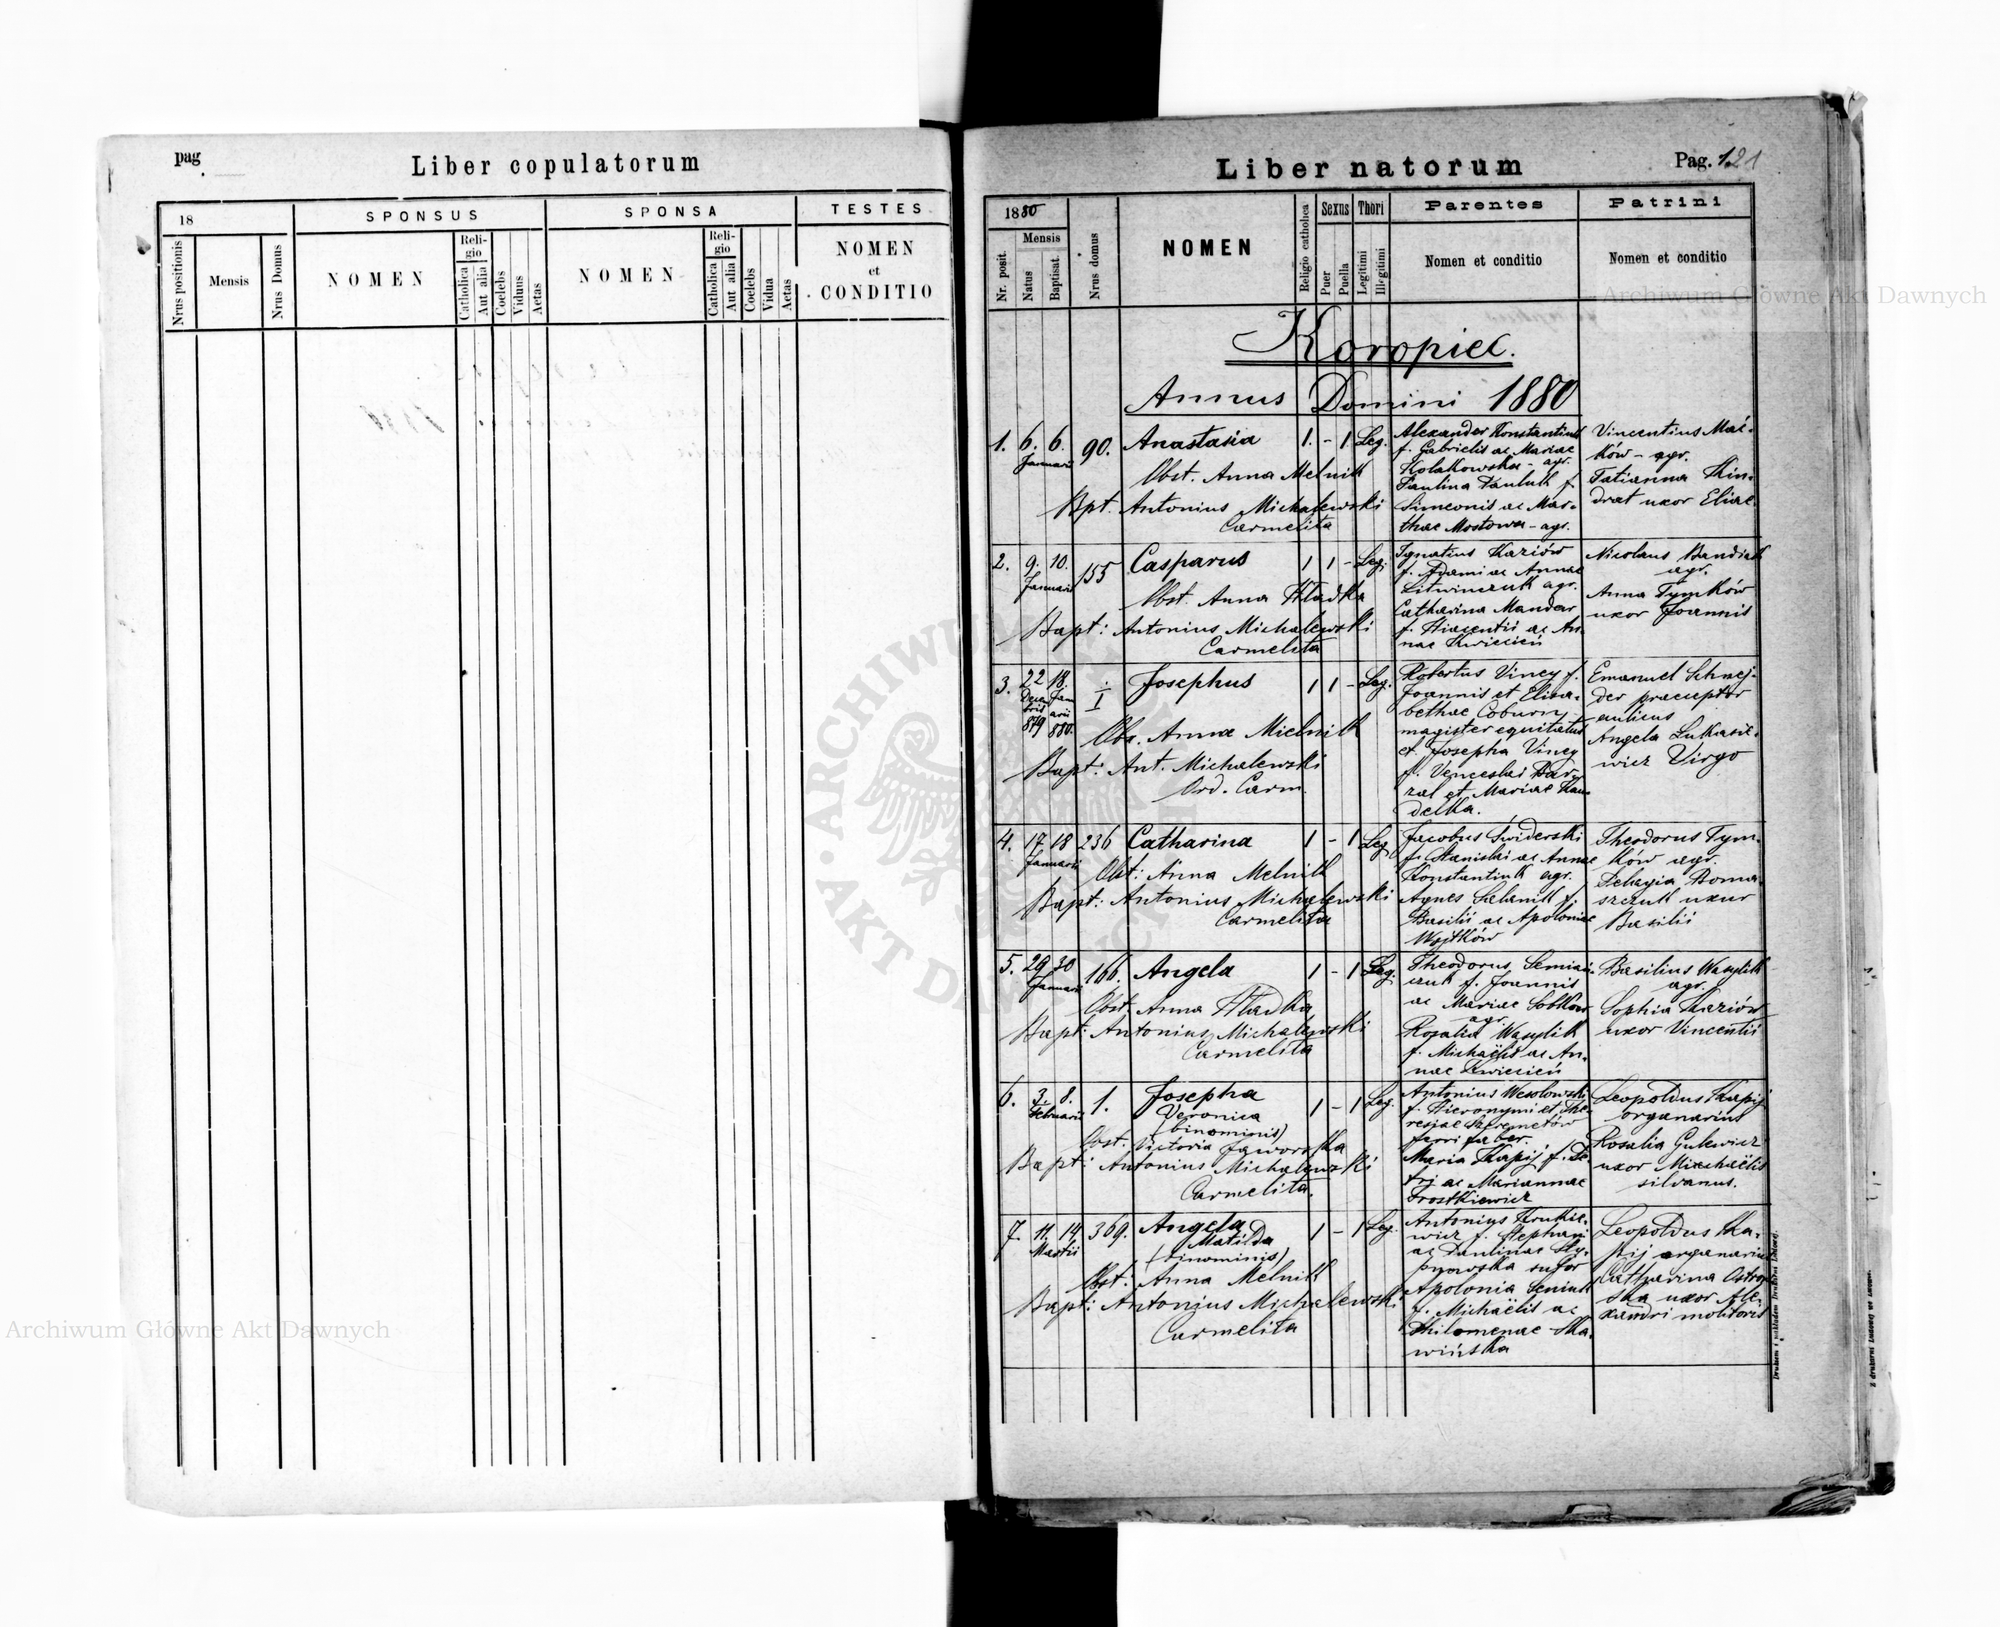 pag.
Liber copulatorum
18
SPONSUS
SPONSA
TESTES
Nrus positionis
Mensis
Nrus Domus
NOMEN
Religio
Catholica
Aut alia
Coelebs
Viduus
Aetas
NOMEN
Religio
Catholica
Aut alia
Coelebs
Vidua
Aetas
NOMEN
et
CONDITIO
Liber natorum
Pag. 121
1880
Nr. posit.
Mensis
Natus
Baptisat.
Nrus domus
NOMEN
Religio catholica
Sexus
Puer
Puella
Thori
Legitimi
Illegitimi
Parentes
Nomen et conditio
Patrini
Nomen et conditio
Koropiec.
Annus Domini 1880
1. 6. 6. Januarii 90. Anastasia 1. - 1 Leg.
Obst. Anna Melnik
Bpt. Antonius Michalewski
Carmelita
Alexander Konstantiuk
f. Gabrielis ac Mariae
Kolakowska - agr.
Paulina Pauluk f.
Simeonis ac Mar-
thae Mostowa - agr.
Vincentius Mać-
ków - agr.
Tatianna Kin-
drat uxor Eliae
2. 9. 10. Januarii 155 Casparus 1 1 - Leg.
Obst. Anna Hladka
Bapt: Antonius Michalewski
Carmelita
Ignatius Kaziów
f. Adami ac Annae
Litwinczuk agr.
Catharina Mandar
f. Hiacentii ac An-
nae Kwiecień
Nicolaus Bandiak
agr.
Anna Tymków
uxor Joannis
3. 22 Decembris 879 18. Januarii 880. I Josephus 1 1 - Leg.
Obs. Anna Mielnik
Bapt: Ant. Michalewski
Ord. Carm.
Robertus Viney f.
Joannis et Elisa-
bethae Coburn
magister equitatus
et Josepha Viney
f. Venceslai
et Mariae
delka.
Emanuel Schnej-
der praeceptor
aulicus
Angela Lukasie-
wicz Virgo
4. 17 18 Januarii 236 Catharina 1 - 1 Leg
Obst: Anna Melnik
Bapt: Antonius Michalewski
Carmelita
Jacobus Świderski
f. Stanislai ac Annae
Konstantiuk agr.
Agnes f.
Basilii ac Apoloniae
Wojtków
Theodorus Tym-
ków agr.
Pelagia Roma-
szczuk uxor
Basilii
5. 29 30 Januarii 166. Angela 1 - 1 Leg.
Obst. Anna Hladka
Bapt: Antonius Michalewski
Carmelita
Theodorus
f. Joannis
ac Mariae Sobków
agr.
Rosalia Wasylik
f. Michaëlis ac An-
nae Kwiecień
Basilius Wasylik
agr.
Sophia Kaziów
uxor Vincentii
6. 3. 8. Februarii 1. Josepha 1 - 1 Leg.
Veronica
(binominis)
Obst. Victoria Jaworska
Bapt: Antonius Michalewski
Carmelita.
Antonius Wesolowski
f. Hieronymi et The-
resiae Szeremetów
ferri faber.
Maria Skapij f. Pe-
tri ac Mariannae
Frostkiewicz
Leopoldus Skapij
organarius
Rosalia Gulewicz
uxor Michaëlis
silvanus.
7. 11. 14. Martii 369. Angela 1 - 1 Leg.
Matilda
(binominis)
Obst: Anna Melnik
Bapt: Antonius Michalewski
Carmelita
Antonius Krukie-
wicz f. Stephani
ac Paulinae
sutor
Apolonia Seniuk
f. Michaëlis ac
Philomenae Ska-
wińska
Leopoldus Ska-
pij organarius
Catharina
uxor Ale-
xandri molitoris
Archiwum Główne Akt Dawnych
Archiwum Główne Akt Dawnych
ARCHIWUM GŁÓWNE AKT DAWNYCH